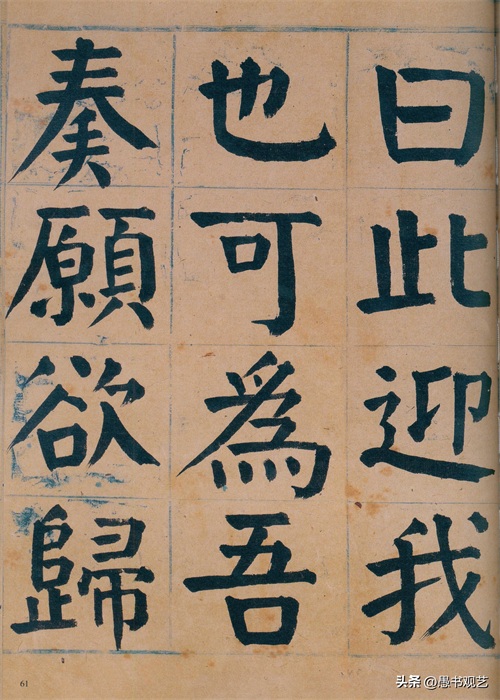 曰此迎我
也可為吾
奏願欲歸
61
头条 @愚书观艺